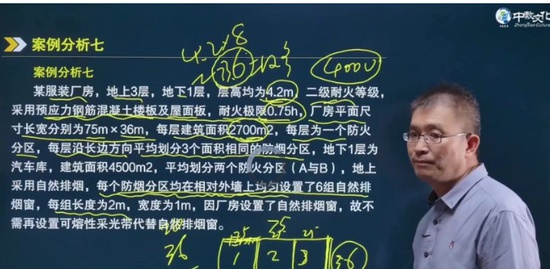 中教文化
ZhongJiao Culture
案例分析七
案例分析七
某服装厂房，地上3层，地下1层，层高均为4.2m，二级耐火等级，
采用预应力钢筋混凝土楼板及屋面板，耐火极限0.75h，厂房平面尺
寸长宽分别为75m×36m，每层建筑面积2700m2，每层为一个防火
分区，每层沿长边方向平均划分3个面积相同的防烟分区，地下1层为
汽车库，建筑面积4500m2，平均划分两个防火分区（A与B），地上
采用自然排烟，每个防烟分区均在相对外墙上均匀设置了6组自然排
烟窗，每组长度为2m，宽度为1m，因厂房设置了自然排烟窗，故不
需再设置可熔性采光带代替自然排烟窗。
75
36
1 2 3
36